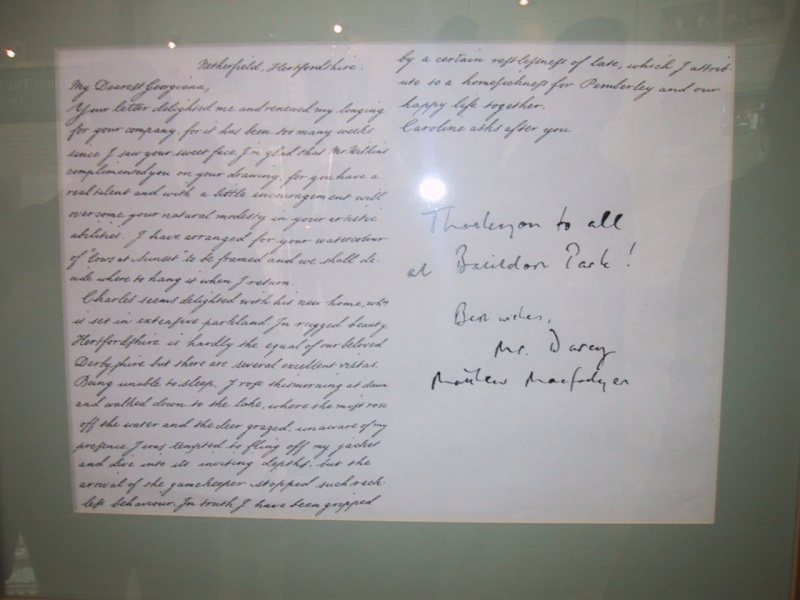 Netherfield, Hertfordshire.
My Dearest Georgiana,
Your letter delighted me and renewed my longing
for your company, for it has been too many weeks
since I saw your sweet face. I'm glad that Mr Wilkins
complimented you on your drawing, for you have a
real talent and with a little encouragement will
overcome your natural modesty in your artistic
abilities. I have arranged for your watercolour
of "Cows at Sunset" to be framed and we shall de-
cide where to hang it when I return.
Charles seems delighted with his new home, wch
is set in extensive parkland. In rugged beauty
Hertfordshire is hardly the equal of our beloved
Derbyshire but there are several excellent vistas.
Being unable to sleep, I rose this morning at dawn
and walked down to the lake, where the mist rose
off the water and the deer grazed, unaware of my
presence. I was tempted to fling off my jacket
and dive into its inviting depths, but the
arrival of the gamekeeper stopped such reck-
less behaviour. In truth, I have been gripped
by a certain restlessness of late, which I attrib-
ute to a homesickness for Pemberley and our
happy life together.
Caroline asks after you
Thankyou to all
at Basildon Park!
Best wishes,
Mr. Darcy
Matthew Macfadyen